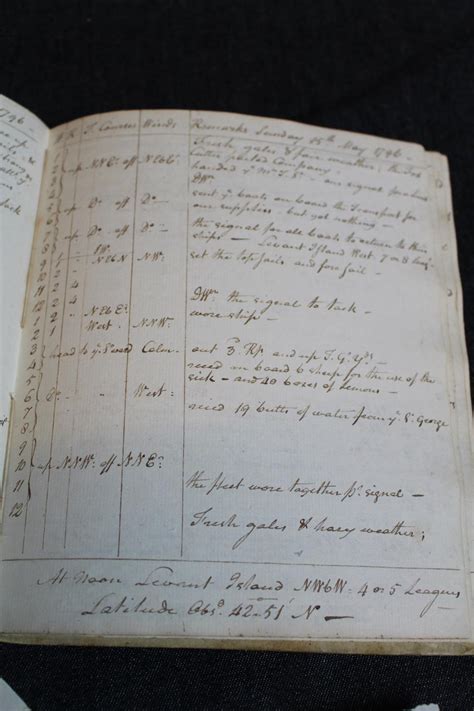 1796 —
H K F Courses Winds Remarks Sunday 15th May 1796 —
1 Fresh gales & fair weather; the Fox
2 up NNEt. off NEbEt. Cutter parted Company.
3 handed ye Mn. T. Sl. — our signal for
4 DWr.
5 up Do. off Do. sent ye boats on board the Transport for
our supplies — but got nothing —
6 up Do. off Do. the signal for all boats to return to their
7 ships — Levant Island West. 7 or 8 leags.
8 NEbN NWt. set the topsails and fore sail —
9 2
10 2
11 4
12 4 DWr. the signal to tack
1 2 NEbEt. wore ship —
2 2 West. NNWt.
3 head to ye Sward Calm. out 3. Rfs and up T. Gt. Yds.
4 recd. on board 6 sheep for the use of the
5 sick — and 40 boxes of Lemons —
6 Do. West. recd. 19 butts of water from ye St. George
7
8
9
10 up NNWt. off NNEt.
11 the fleet wore together pr. signal —
12 Fresh gales & hazy weather;
At Noon Levant Island NWbW. 4 or 5 Leagues
Latitude Obsd. 42-51' N —